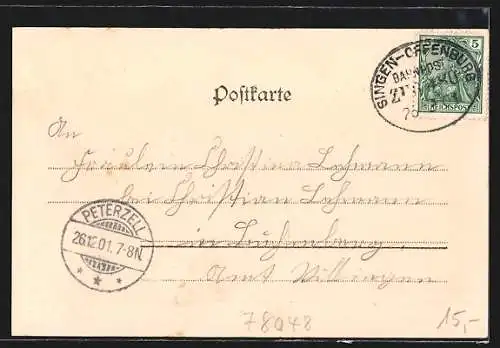 5
REICHSPOST
SINGEN-OFFENBURG
BAHNPOST
ZUG
Postkarte
An
Fräulein Christina Lehmann
bei Christian Lehmann
in Buchenberg
Amt Villingen
PETERZELL
26.12.01.7-8N.
78048
15,-